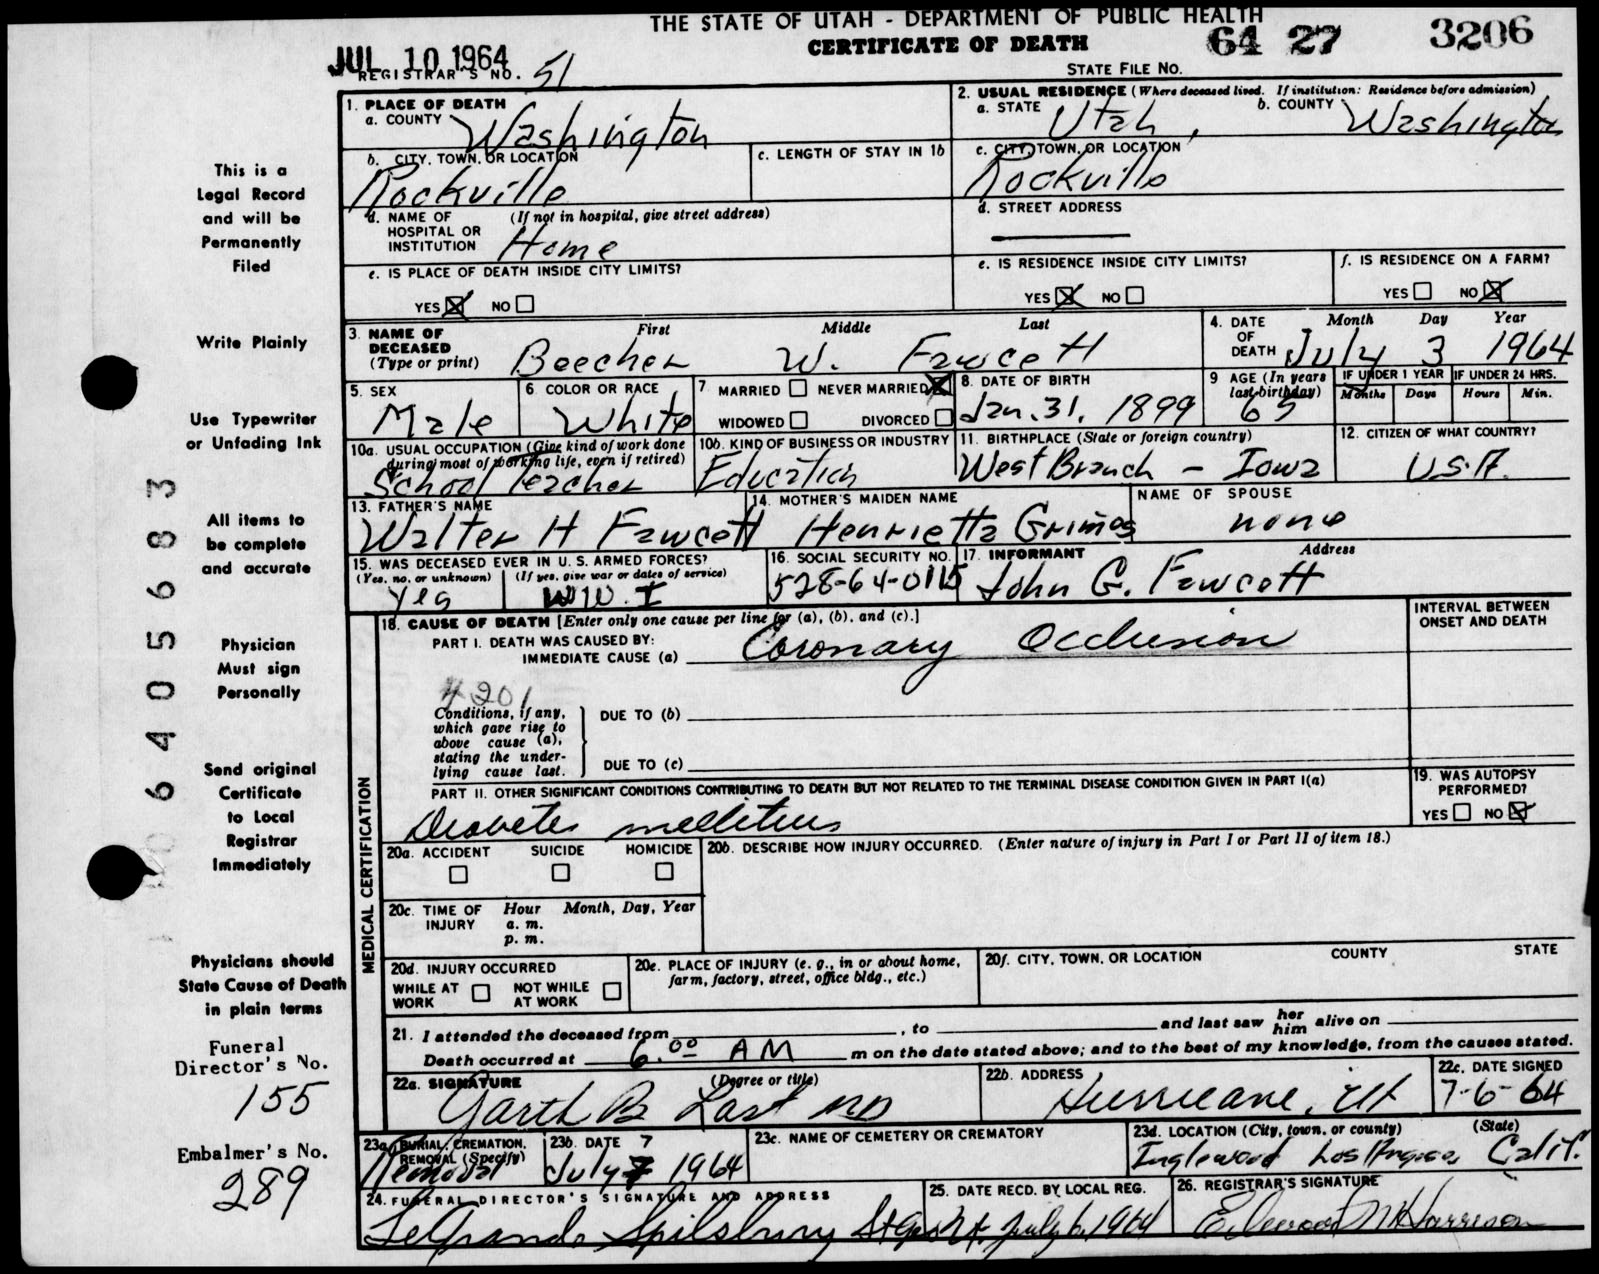 THE STATE OF UTAH - DEPARTMENT OF PUBLIC HEALTH
CERTIFICATE OF DEATH
64 27 3206
JUL 10 1964
REGISTRAR'S NO. 51
STATE FILE NO.
1. PLACE OF DEATH
a. COUNTY Washington
2. USUAL RESIDENCE (Where deceased lived. If institution: Residence before admission)
a. STATE Utah, b. COUNTY Washington
b. CITY, TOWN, OR LOCATION Rockville
c. LENGTH OF STAY IN 1b
c. CITY, TOWN, OR LOCATION Rockville
d. NAME OF HOSPITAL OR INSTITUTION (If not in hospital, give street address) Home
d. STREET ADDRESS
e. IS PLACE OF DEATH INSIDE CITY LIMITS?
YES ☒ NO ☐
e. IS RESIDENCE INSIDE CITY LIMITS?
YES ☒ NO ☐
f. IS RESIDENCE ON A FARM?
YES ☐ NO ☒
3. NAME OF DECEASED (Type or print)
First Middle Last
Beecher W. Fawcett
4. DATE OF DEATH
Month Day Year
July 3 1964
5. SEX Male
6. COLOR OR RACE White
7. MARRIED ☐ NEVER MARRIED ☒
WIDOWED ☐ DIVORCED ☐
8. DATE OF BIRTH Jan. 31, 1899
9 AGE (In years last birthday) 65
IF UNDER 1 YEAR IF UNDER 24 HRS.
Months Days Hours Min.
10a. USUAL OCCUPATION (Give kind of work done during most of working life, even if retired) School Teacher
10b. KIND OF BUSINESS OR INDUSTRY Education
11. BIRTHPLACE (State or foreign country) West Branch - Iowa
12. CITIZEN OF WHAT COUNTRY? U.S.A.
13. FATHER'S NAME Walter H Fawcett
14. MOTHER'S MAIDEN NAME Henrietta Grimes
NAME OF SPOUSE none
15. WAS DECEASED EVER IN U. S. ARMED FORCES?
(Yes, no, or unknown) (If yes, give war or dates of service)
Yes W.W. I
16. SOCIAL SECURITY NO. 528-64-0115
17. INFORMANT Address
John G. Fawcett
MEDICAL CERTIFICATION
18. CAUSE OF DEATH [Enter only one cause per line for (a), (b), and (c).]
INTERVAL BETWEEN ONSET AND DEATH
PART I. DEATH WAS CAUSED BY:
IMMEDIATE CAUSE (a) Coronary Occlusion
4201
Conditions, if any, which gave rise to above cause (a), stating the underlying cause last.
DUE TO (b)
DUE TO (c)
PART II. OTHER SIGNIFICANT CONDITIONS CONTRIBUTING TO DEATH BUT NOT RELATED TO THE TERMINAL DISEASE CONDITION GIVEN IN PART I(a)
Diabetes mellitus
19. WAS AUTOPSY PERFORMED?
YES ☐ NO ☒
20a. ACCIDENT SUICIDE HOMICIDE
☐ ☐ ☐
20b. DESCRIBE HOW INJURY OCCURRED. (Enter nature of injury in Part I or Part II of item 18.)
20c. TIME OF INJURY Hour Month, Day, Year
a. m.
p. m.
20d. INJURY OCCURRED
WHILE AT WORK ☐ NOT WHILE AT WORK ☐
20e. PLACE OF INJURY (e. g., in or about home, farm, factory, street, office bldg., etc.)
20f. CITY, TOWN, OR LOCATION COUNTY STATE
21. I attended the deceased from , to and last saw her him alive on
Death occurred at 6:00 AM m on the date stated above; and to the best of my knowledge, from the causes stated.
22a. SIGNATURE (Degree or title)
Garth B Last MD
22b. ADDRESS Hurricane, Ut
22c. DATE SIGNED 7-6-64
23a. BURIAL, CREMATION, REMOVAL (Specify) Removal
23b. DATE 7
July 7 1964
23c. NAME OF CEMETERY OR CREMATORY
23d. LOCATION (City, town, or county) (State)
Inglewood Los Angeles Calif.
24. FUNERAL DIRECTOR'S SIGNATURE AND ADDRESS
LeGrande Spilsbury St Geo Ut.
25. DATE RECD. BY LOCAL REG. July 6, 1964
26. REGISTRAR'S SIGNATURE
Harrison
This is a
Legal Record
and will be
Permanently
Filed
Write Plainly
Use Typewriter
or Unfading Ink
All items to
be complete
and accurate
Physician
Must sign
Personally
Send original
Certificate
to Local
Registrar
Immediately
Physicians should
State Cause of Death
in plain terms
Funeral
Director's No.
155
Embalmer's No.
289
6405683